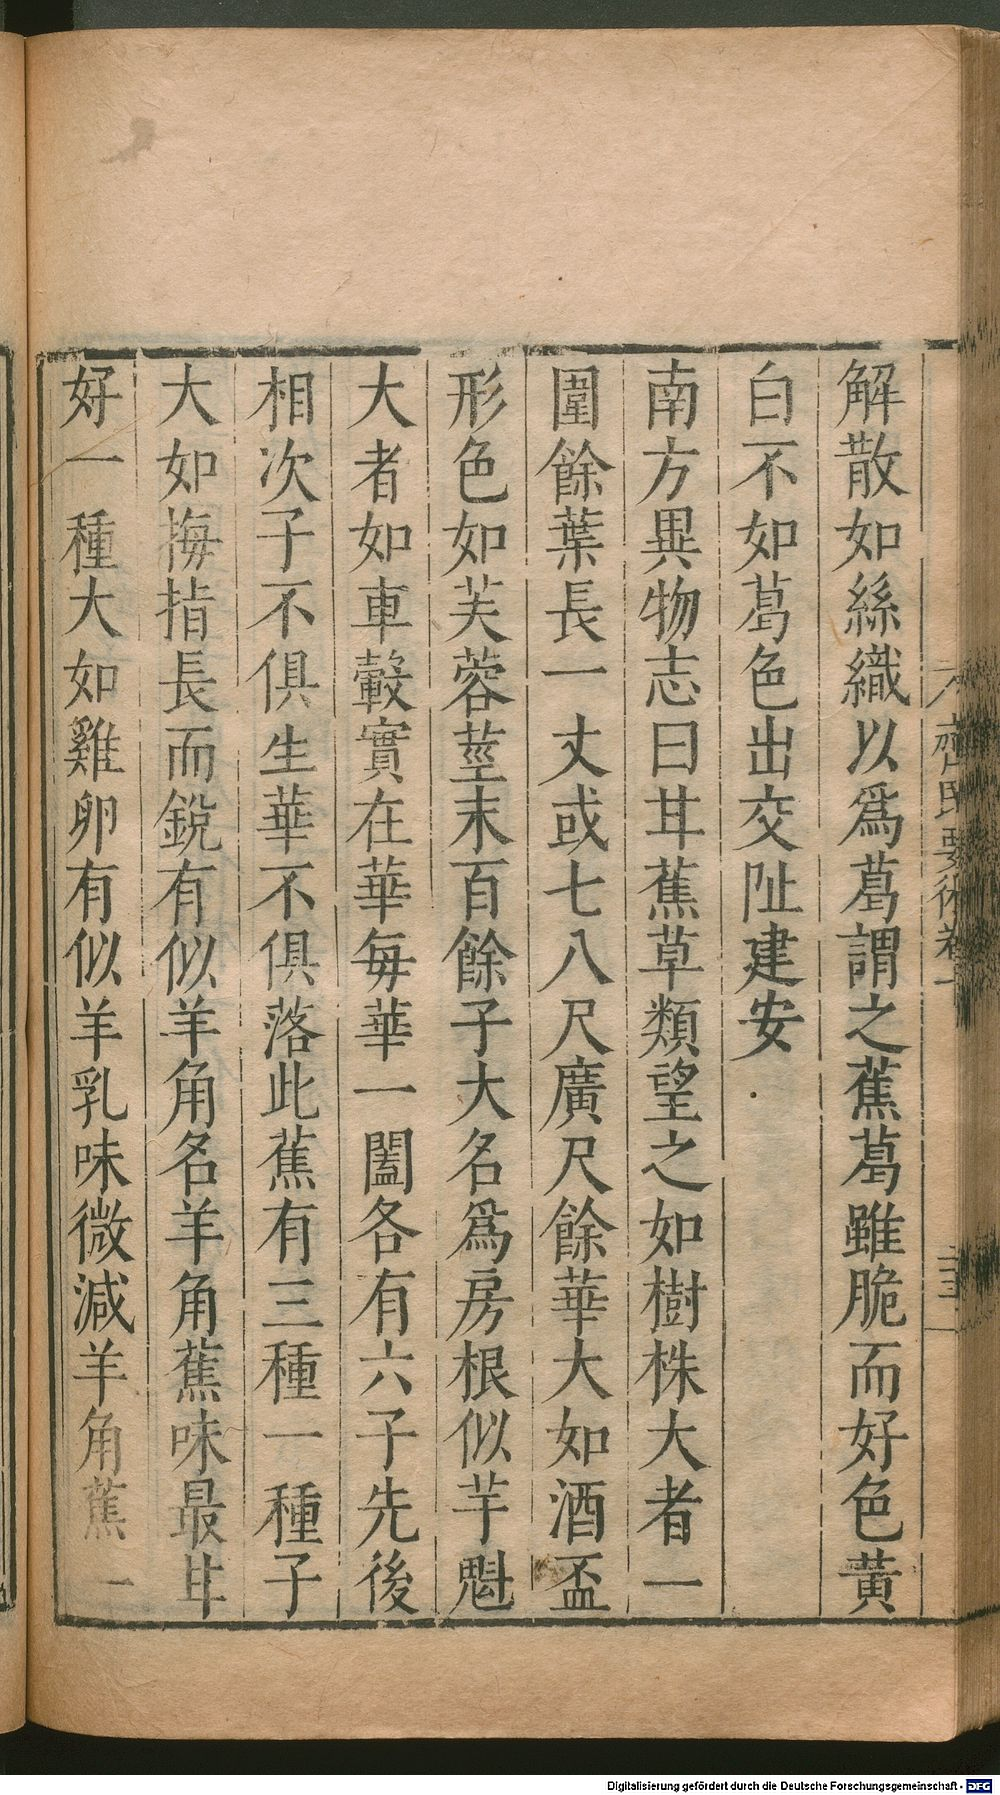 解散如絲織以爲葛謂之蕉葛雖脆而好色黄
白不如葛色出交阯建安
南方異物志曰甘蕉草類望之如樹株大者一
圍餘葉長一丈或七八尺廣尺餘華大如酒盃
形色如芙蓉莖末百餘子大名爲房根似芋魁
大者如車轂實在華每華一闔各有六子先後
相次子不俱生華不俱落此蕉有三種一種子
大如拇指長而銳有似羊角名羊角蕉味最甘
好一種大如雞卵有似羊乳味微減羊角蕉一
齊民要術卷十
Digitalisierung gefördert durch die Deutsche Forschungsgemeinschaft - DFG